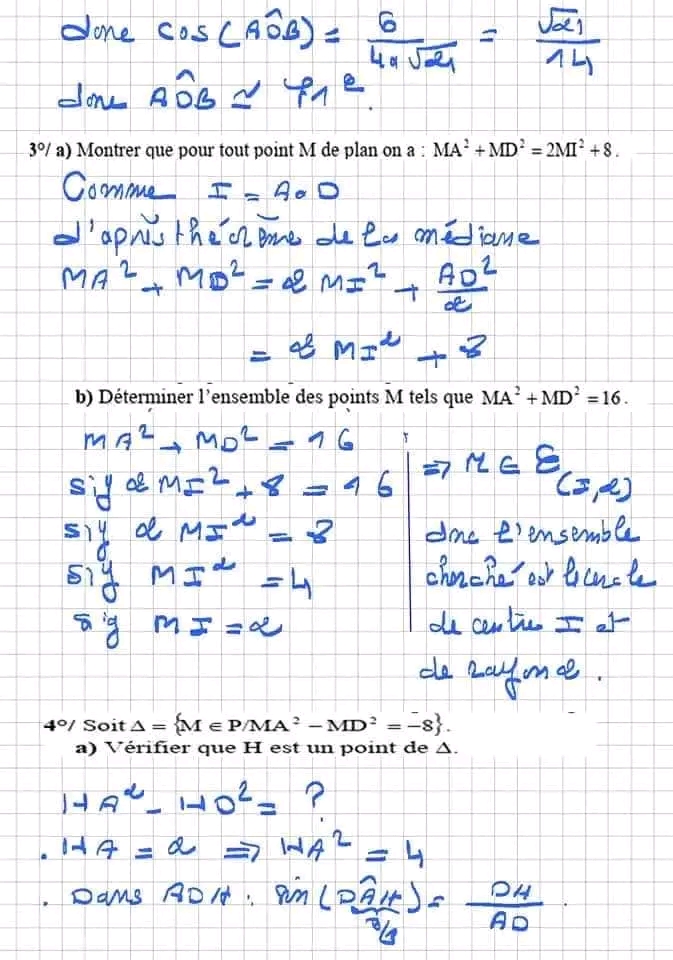 donc cos(AÔB) = 6/(4√21) = √21/14
donc AÔB ≃ 71°.
3°/ a) Montrer que pour tout point M de plan on a : MA² + MD² = 2MI² + 8.
Comme I = A * D
d'après théorème de la médiane
MA² + MD² = 2 MI² + AD²/2
= 2 MI² + 8
b) Déterminer l'ensemble des points M tels que MA² + MD² = 16.
MA² + MD² = 16
sig 2 MI² + 8 = 16
sig 2 MI² = 8
sig MI² = 4
sig MI = 2
⇒ M ∈ 𝒞(I,2)
donc l'ensemble
cherché est le cercle
de centre I et
de rayon 2.
4°/ Soit Δ = {M ∈ P/MA² − MD² = −8}.
a) Vérifier que H est un point de Δ.
HA² - HD² = ?
. HA = 2 ⇒ HA² = 4
. Dans ADH : sin(DÂH) = DH/AD
π/3